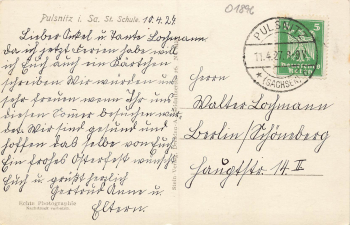 Pulsnitz i. Sa. St. Schule. 10.4.27
Lieber Onkel u tante Lochmann
da ich jetzt Ferien habe will
ich Euch auch ein Kärtchen
schreiben Wir würden uns
sehr freuen wenn Ihr uns
diesen Somer besuchen wür-
det. Wir sind gesund und
hoffen das selbe von Euch
Ein frohes Osterfest wünscht
Euch u. grüßt herzlich
Gertrud Anne u
Eltern.
Echte Photographie
01896
PULSNITZ
11.4.27
(SACHSEN)
5
Deutsches Reich
Walter Lochmann
Berlin/Schöneberg
Hauptstr. 14 II